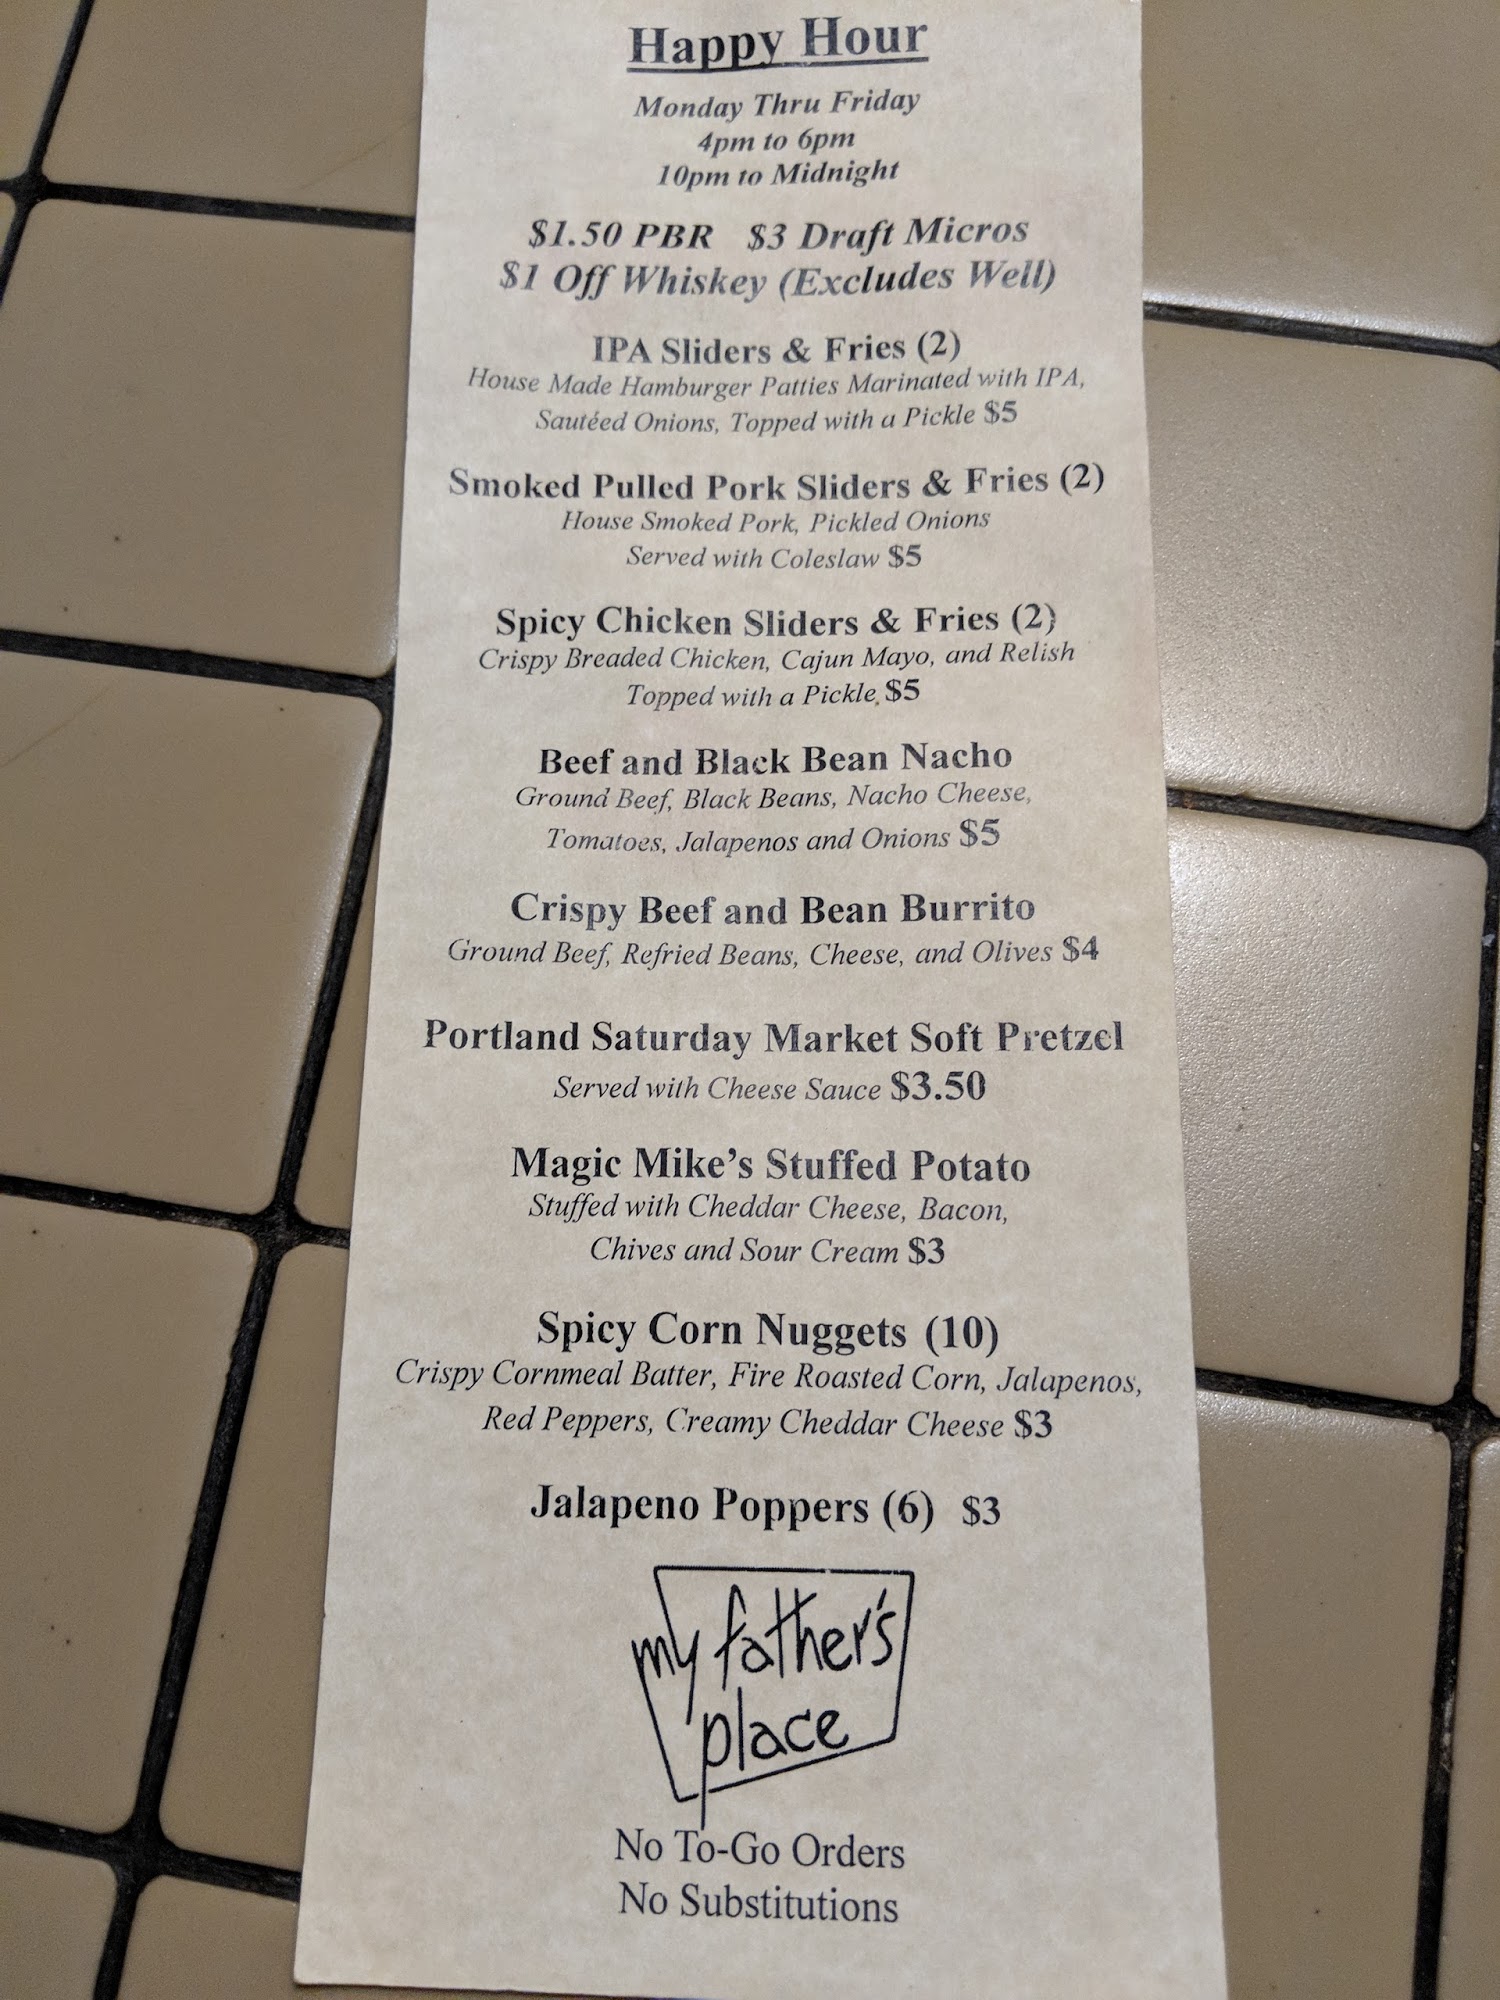 Happy Hour
Monday Thru Friday
4pm to 6pm
10pm to Midnight
$1.50 PBR $3 Draft Micros
$1 Off Whiskey (Excludes Well)
IPA Sliders & Fries (2)
House Made Hamburger Patties Marinated with IPA,
Sautéed Onions, Topped with a Pickle $5
Smoked Pulled Pork Sliders & Fries (2)
House Smoked Pork, Pickled Onions
Served with Coleslaw $5
Spicy Chicken Sliders & Fries (2)
Crispy Breaded Chicken, Cajun Mayo, and Relish
Topped with a Pickle $5
Beef and Black Bean Nacho
Ground Beef, Black Beans, Nacho Cheese,
Tomatoes, Jalapenos and Onions $5
Crispy Beef and Bean Burrito
Ground Beef, Refried Beans, Cheese, and Olives $4
Portland Saturday Market Soft Pretzel
Served with Cheese Sauce $3.50
Magic Mike's Stuffed Potato
Stuffed with Cheddar Cheese, Bacon,
Chives and Sour Cream $3
Spicy Corn Nuggets (10)
Crispy Cornmeal Batter, Fire Roasted Corn, Jalapenos,
Red Peppers, Creamy Cheddar Cheese $3
Jalapeno Poppers (6) $3
my father's
place
No To-Go Orders
No Substitutions